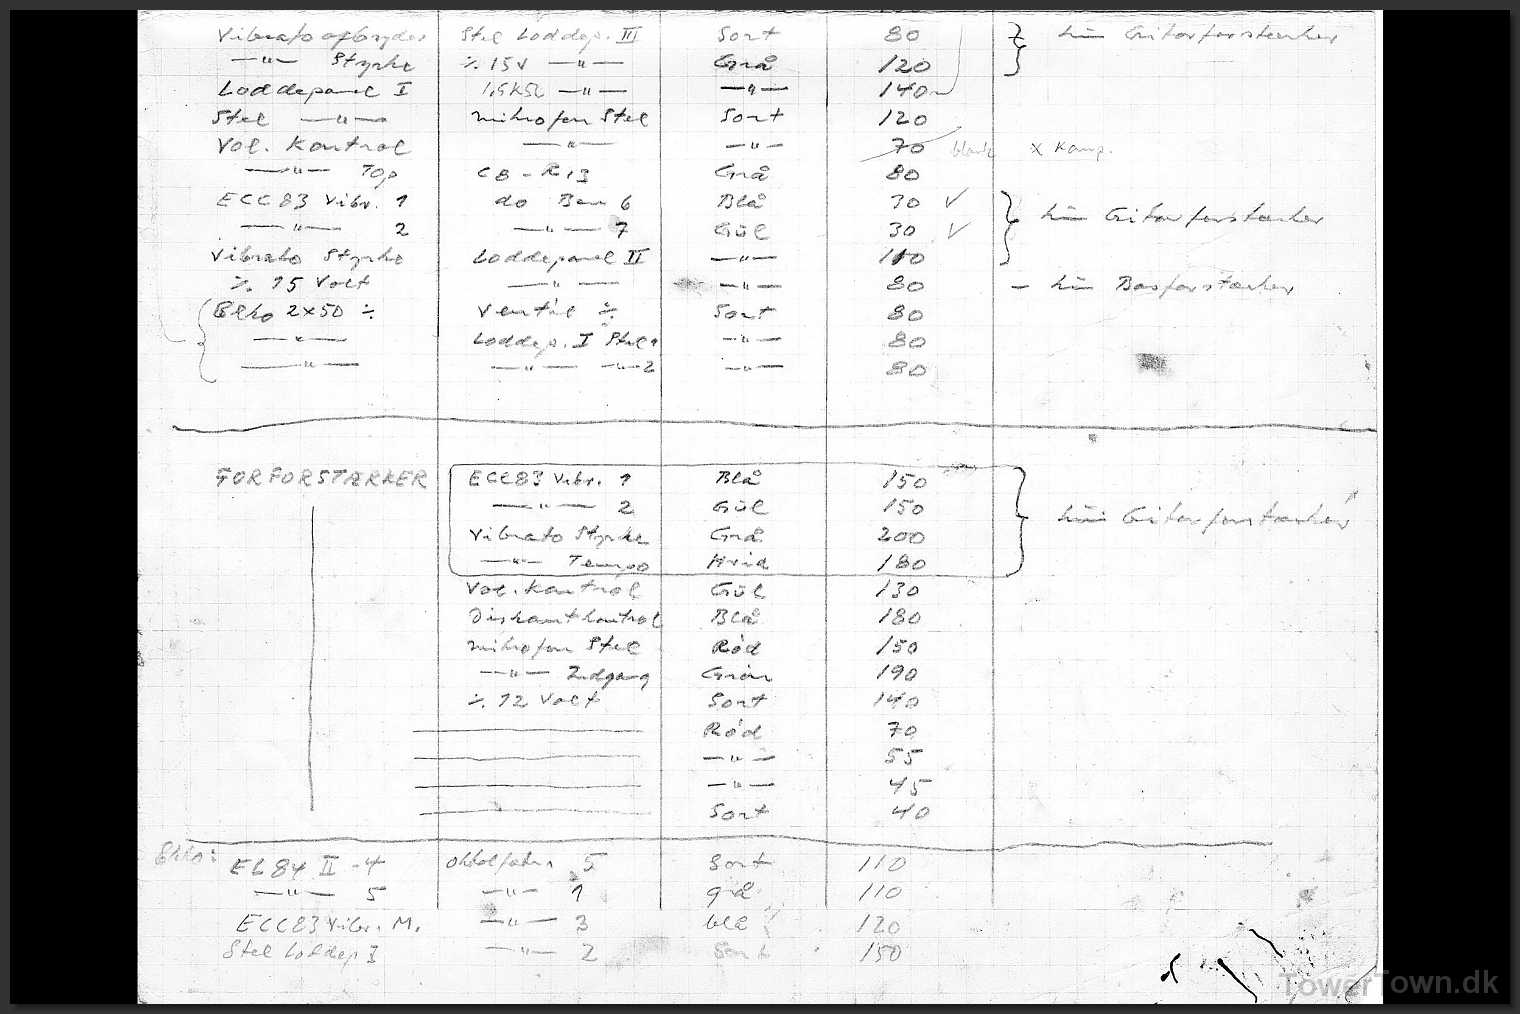 Vibrato afbryder Stel Loddep. III Sort 80 kun Gitarforstærker
—"— Styrke ÷ 15V —"— Grå 120
Loddepanel I 1,5KΩ —"— —"— 140
Stel —"— mikrofon Stel Sort 120
Vol. Kontrol —"— —"— 70 blank x Komp.
—"— Top C8 - R13 Grå 80
ECC83 Vibr. 1 do Ben 6 Blå 30 ✓
—"— 2 —"— 7 Gül 30 ✓ kun Gitarforstærker
Vibrato Styrke Loddepanel II —"— 110
÷ 15 Volt —"— —"— 80 – kun Basforstærker
Elko 2x50 ÷ Ventil ÷ Sort 80
—"— Loddep. I Stel 1 —"— 80
—"— —"— —"— 2 —"— 80
FORFORSTÆRKER ECC83 Vibr. 1 Blå 150
—"— 2 Gül 150
Vibrato Styrke Grå 200 kun Gitarforstærker
—"— Tempo Hvid 180
Vol. Kontrol Gül 130
Diskantkontrol Blå 180
mikrofon Stel Rød 150
—"— Indgang Grøn 190
÷ 12 Volt Sort 140
Rød 70
—"— 55
—"— 45
Sort 40
Ekko: EL84 II -4 5 Sort 110
—"— 5 —"— 1 grå 110
ECC83 Vibr. M. —"— 3 blå 120
Stel Loddep I —"— 2 Sort 150
TowerTown.dk